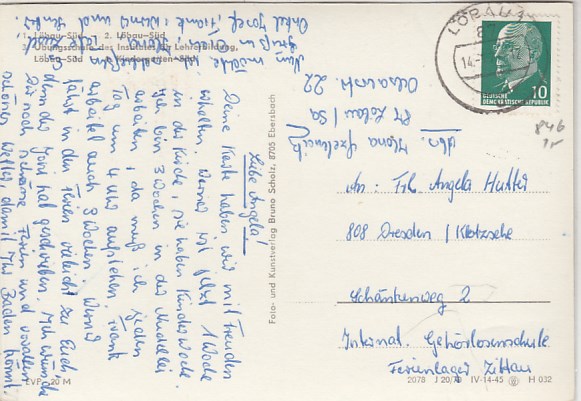 1. Löbau-Süd 2. Löbau-Süd
3. Übungsschule des Instituts für Lehrerbildung,
Löbau-Süd Kindergarten-Süd
Liebe Angela!
Deine Karte haben wir mit Freuden
erhalten. Werner ist jetzt 1 Woche
in der Küche, sie haben Kinder Woche
ich bin 3 Wochen in der
arbeiten, da muß ich jeden
Tag um 4 Uhr aufstehen. Frank
arbeitet auch 3 Wochen. Werner
fährt in den Ferien vielleicht zu Euch
denn der hat geschrieben. Ich wünsche
Dir noch schöne Ferien und vorallem
schönes Wetter, damit Ihr Baden könnt.
Nun möchte ich schließen
Es grüßen Dich
Onkel Josef, Frank, Werner und
Abs. Ilona
Löbau/Sa
22
Foto- und Kunstverlag Bruno Scholz, 8705 Ebersbach
LÖBAU
14
10
DEUTSCHE
DEMOKRATISCHE REPUBLIK
846
An: Frl. Angela Hutter
808 Dresden / Klotzsche
Schänkenweg 2
Internat. Gehörlosenschule
Ferienlager Zittau
EVP 20 M
2078 J 20/70 IV-14-45 H 032